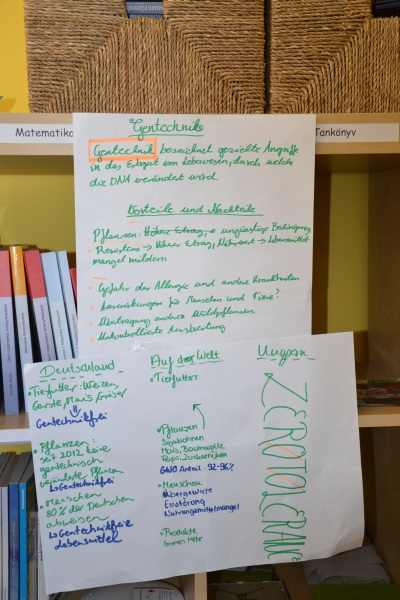 Matematika
Tankönyv
Gentechnik
Gentechnik bezeichnet gezielte Angriffe
in das Erbgut von Lebewesen, durch welche
die DNA verändert wird.
Vorteile und Nachteile
Pflanzen: ungünstige Bedingung
Resistenz → Höherer Ertrag, Nährwert → Lebensmittel
mangel mildern
Gefahr der Allergie und andere Krankheiten
für Menschen und Tiere?
Übertragung andere Wildpflanzen
Unkontrollierte Ausbreitung
Deutschland
Tierfutter: Weizen,
Gerste, Mais, Gräser
Gentechnikfrei
Pflanzen:
seit 2012 keine
gentechnisch
veränderte Pflanzen
↳ Gentechnikfrei
Menschen
80% der Deutschen
abweisen
↳ Gentechnikfreie
Lebensmittel
Auf der Welt
Tierfutter:
Pflanzen
Sojabohnen
Mais, Baumwolle
Raps, Zuckerrüben
GVO Anteil 92-96%
Menschen
Übergewichte
Nahrungsmittelmangel
Produkte
immer mehr
Ungarn
ZEROTOLERANCE